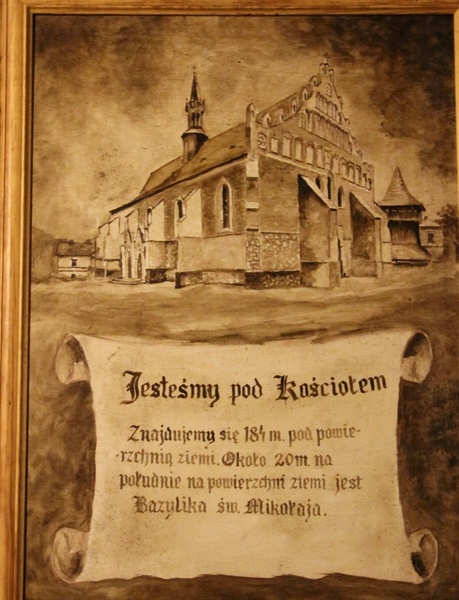 Jesteśmy pod Kościołem
Znajdujemy się 184 m. pod powie-
rzchnią ziemi. Około 20m. na
południe na powierzchni ziemi jest
Bazylika św. Mikołaja.